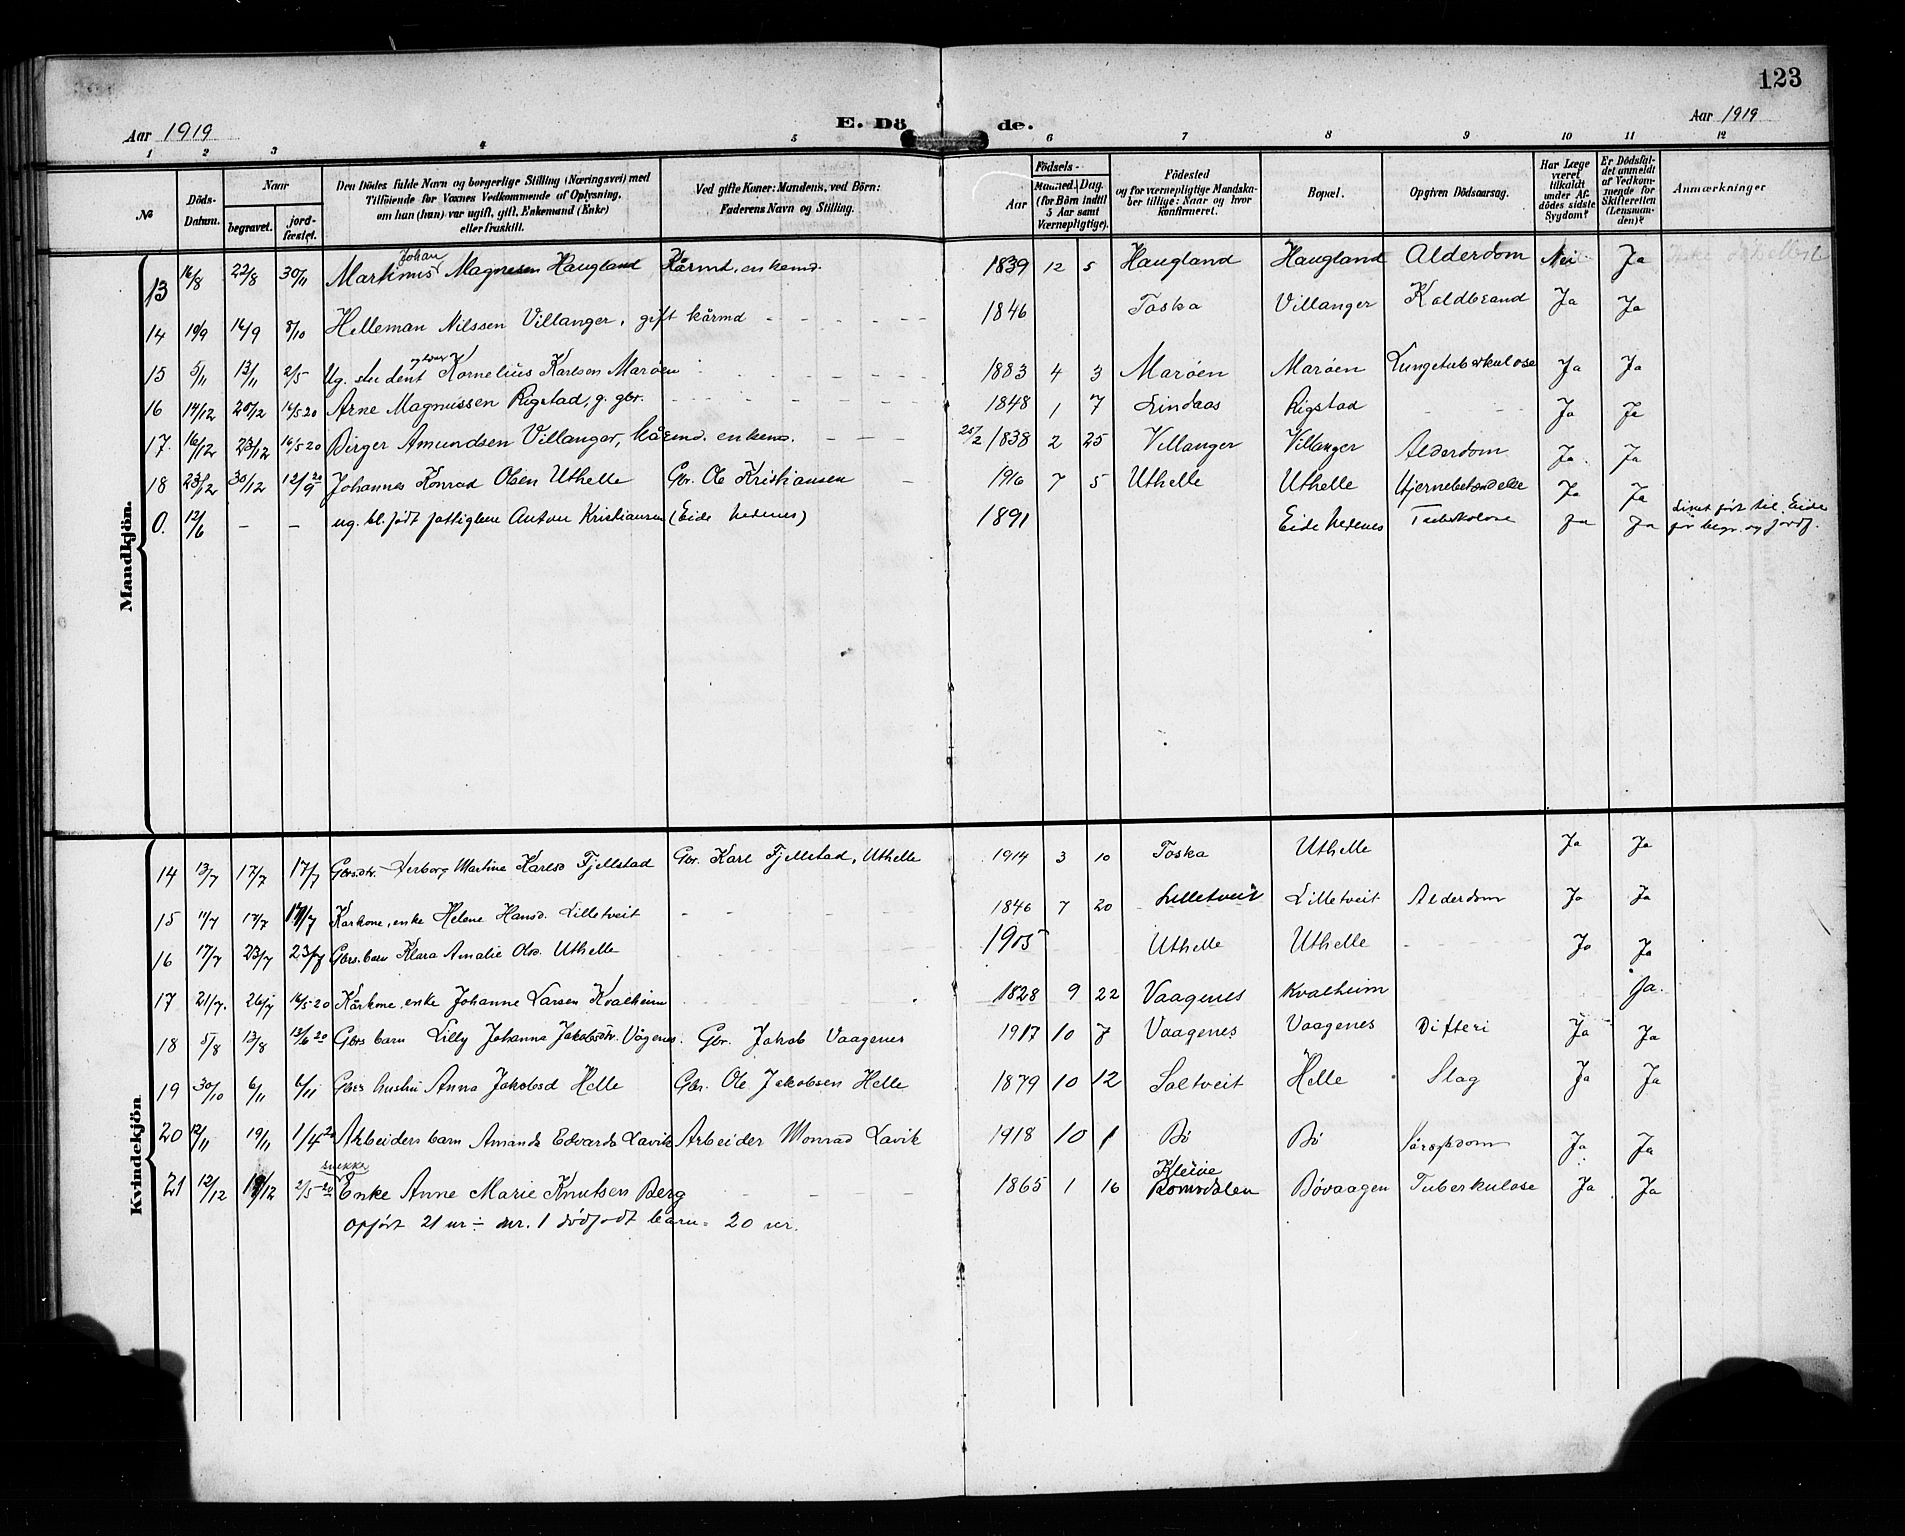 123
Aar 1919 E. Dö de. Aar 1919
1 2 3 4 5 6 7 8 9 10 11 12
№ Döds-Datum. Naar begravet. jord-fæstet. Den Dödes fulde Navn og borgerlige Stilling (Næringsvei) med Tilföiende for Voxnes Vedkommende af Oplysning, om han (hun) var ugift, gift, Enkemand (Enke) eller fraskilt. Ved gifte Koner: Mandens, ved Börn: Faderens Navn og Stilling. Födsels- Aar Maaned. Dag. (for Börn indtil 5 Aar samt Værnepligtige). Födested og for værnepligtige Mandskaber tillige: Naar og hvor konfirmeret. Bopæl. Opgiven Dödsaarsag. Har Læge været tilkaldt under Afdödes sidste Sygdom? Er Dödsfaldet anmeldt af Vedkommende for Skifteretten (Lensmanden)? Anmærkninger
Mandkjön.
Johan
13 16/8 22/8 30/11 Martinus Magnesen Haugland Kårmd. enkemd. 1839 12 5 Haugland Haugland Alderdom Nei Ja
14 10/9 16/9 8/10 Helleman Nilssen Villanger, gift kårmd - - - - - 1846 Toska Villanger Koldbrand Ja Ja
15 5/11 13/11 2/5 Ug. student Kornelius Karlsen Marøen - - - - 1883 4 3 Marøen Marøen Lungetuberkulose Ja Ja
16 14/12 20/12 16/5 20 Arne Magnussen Rigstad, g. gbr. - - - - 1848 1 7 Lindaas Rigstad - - Ja Ja
17. 16/12 23/12 16/5 20 Birger Amundsen Villanger, kårmd. enkemd. - - - 25/2 1838 2 25 Villanger Villanger Alderdom Ja Ja
18 23/12 30/12 12/9 20 Johannes Konrad Olsen Uthelle Gbr. Ole Kristiansen - 1916 7 5 Uthelle Uthelle Hjernebetændelse Ja Ja
0. 12/6 - - ug. bl. født fattiglem Anton Kristiansen (Eide Nedenes) 1891 Eide Nedenes Tuberkolose Ja Ja Liket ført til Eide
for begr. og jordf.
Kvindekjön.
14 13/7 17/7 17/7 Gbrs.dtr. Herborg Martine Karlsd Fjellstad Gbr. Karl Fjellstad, Uthelle 1914 3 10 Toska Uthelle Ja Ja
15 11/7 17/7 17/7 Kårkone, enke Helene Hansd. Lilletveit - - - - 1846 7 20 Lilletveit Lilletveit Alderdom Ja Ja
16 17/7 23/7 23/7 Gbrs. barn Klara Amalie Olsd. Uthelle - - - - 1905 Uthelle Uthelle - - - Ja Ja
17 21/7. 26/7 16/5 20 Kårkone, enke Johanne Larsen Kvalheim - - - - 1828 9 22 Vaagenes Kvalheim Ja.
18 5/8 13/8 13/6 20 Gbrs barn Lilly Johanna Jakobsdtr. Vågenes. Gbr. Jakob Vaagenes 1917 10 7 Vaagenes Vaagenes Difteri Ja Ja
19 30/10 6/11 6/11 Gbrs hustru Anna Jakobsd Helle Gbr. Ole Jakobsen Helle 1879 10 12 Soltveit Helle Slag Ja Ja
20 12/11 19/11 1/4 20 Arbeiders barn Amanda Edvarda Lavik Arbeider Monrad Lavik 1918 10 1 Bö Bö Ja Ja
21 12/12 18/12 2/5 20 Enke Anne Marie Knutsen Berg - - - 1865 1 16 Kleive Romsdalen Bövaagen Tuberkulose Ja Ja
Opført 21 nr ÷ nr. 1 dödfödt barn = 20 nr.